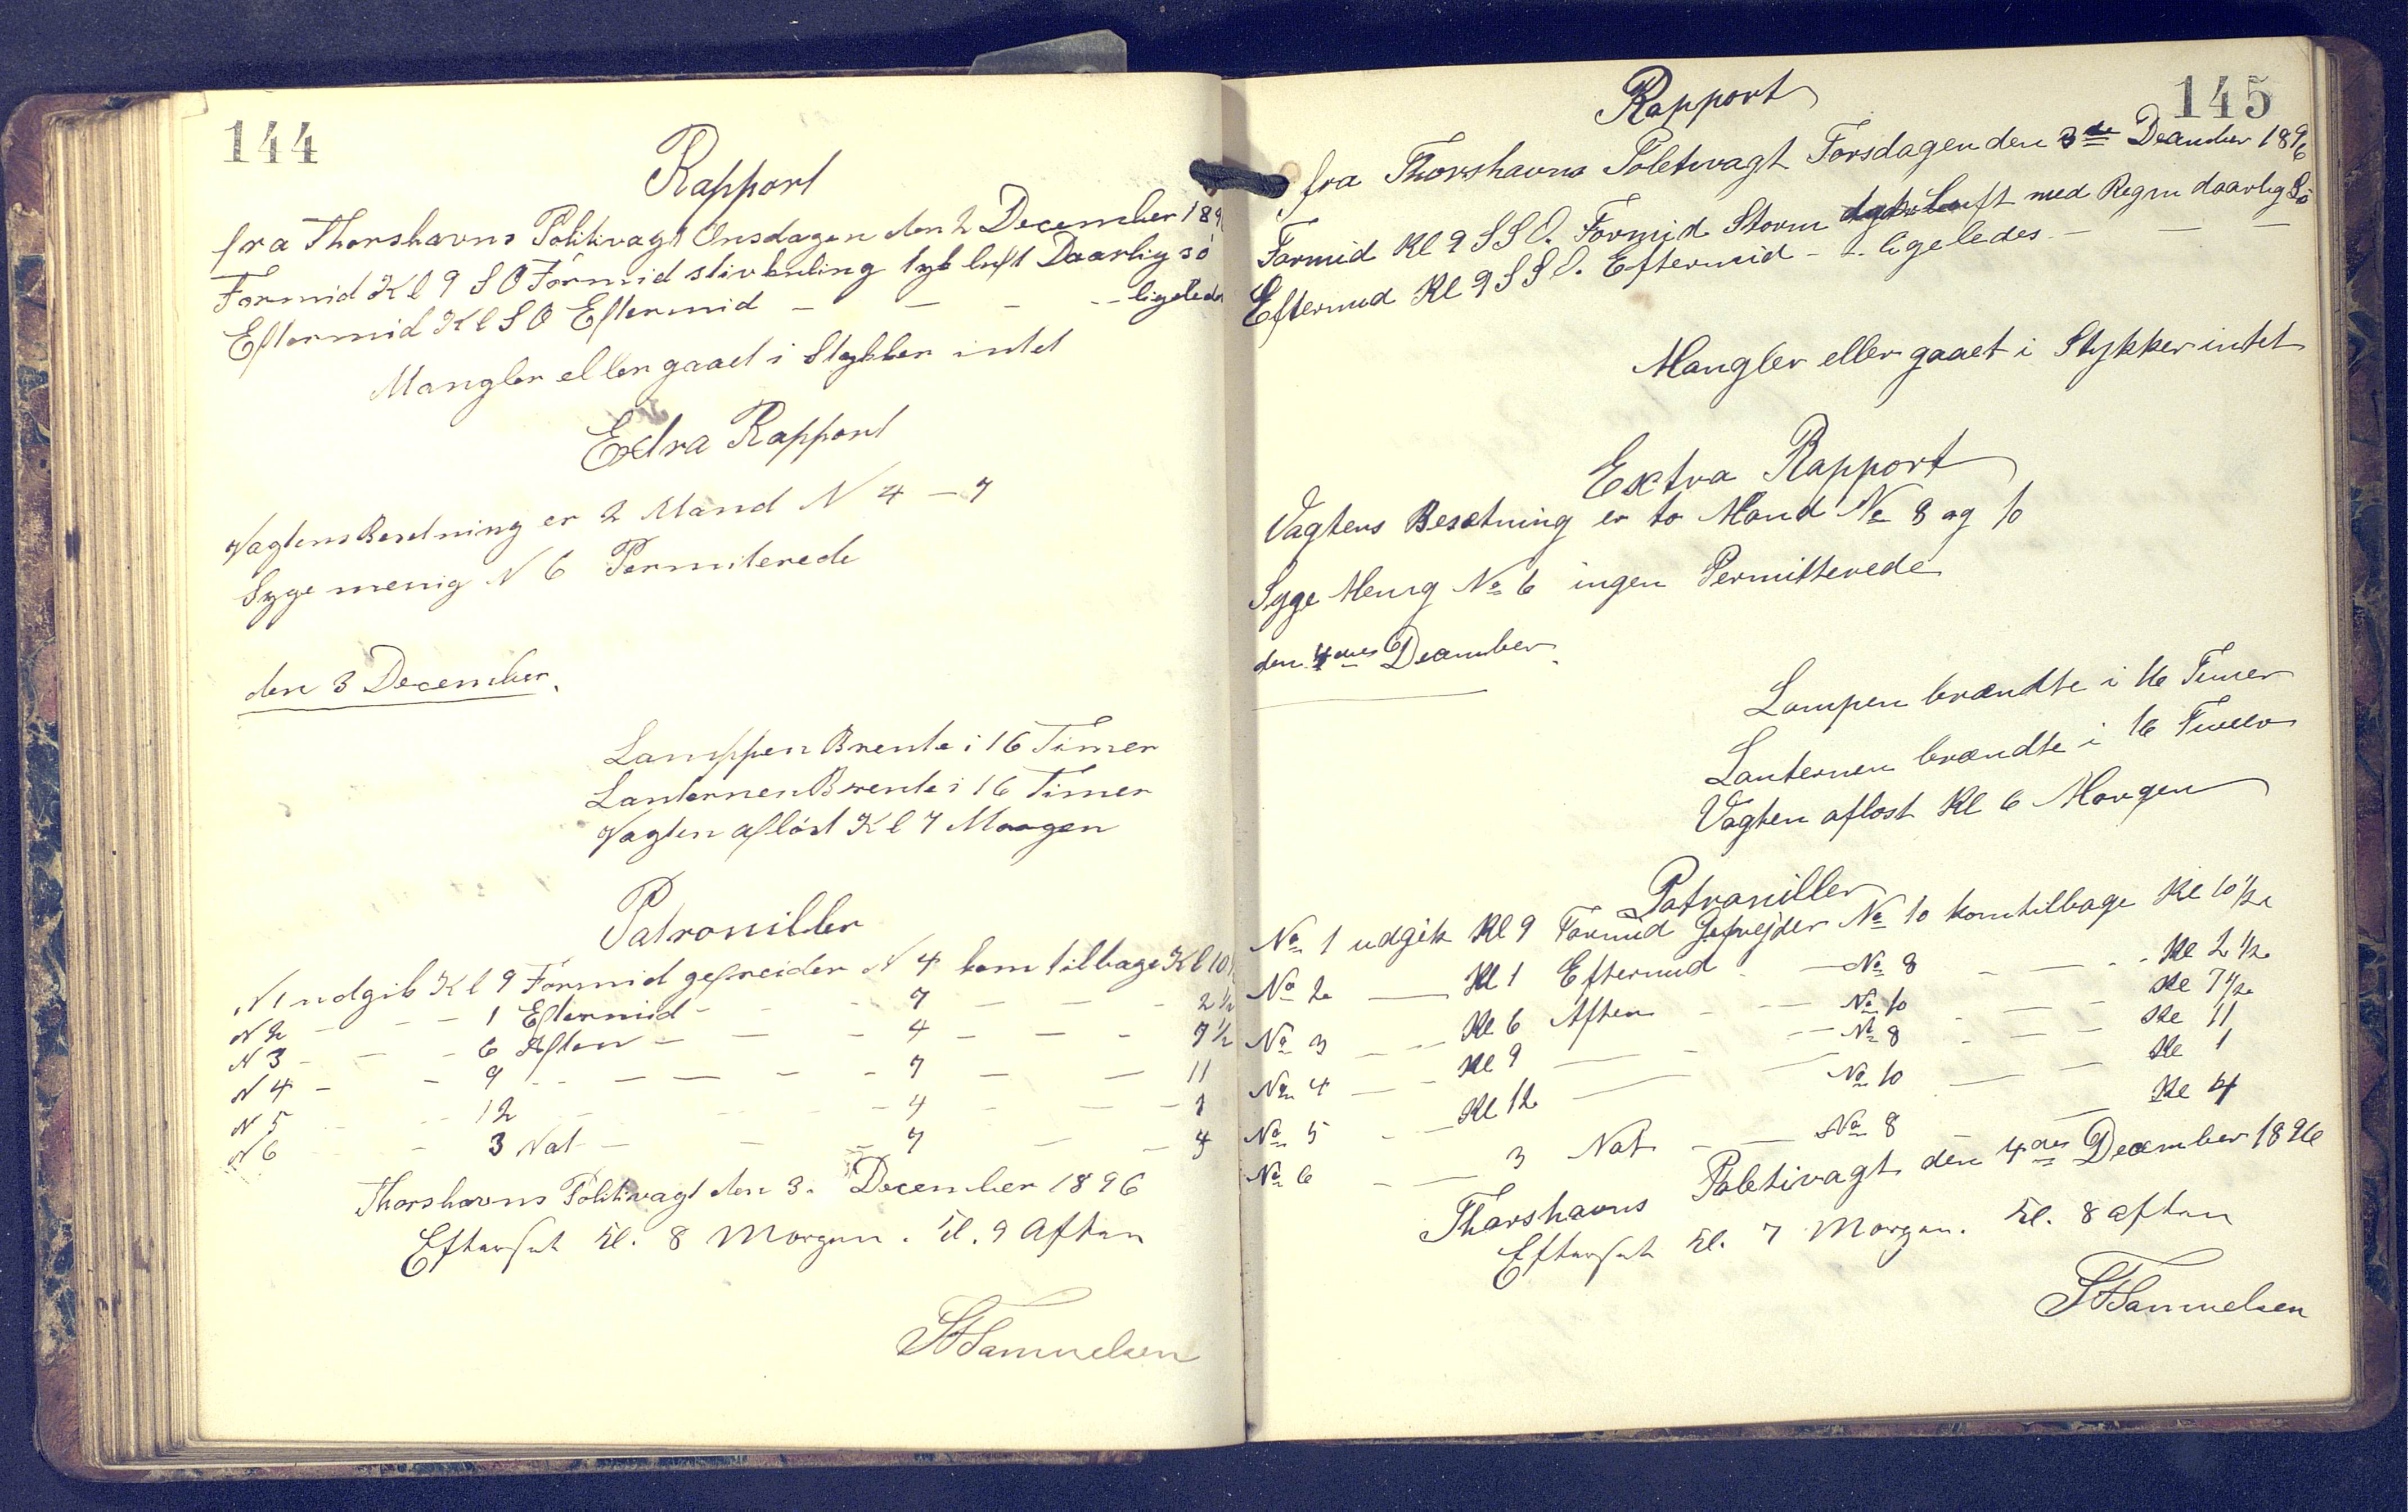 144
Rapport
fra Thorshavns Politivagt Onsdagen den 2 December 189
Formid Kl 9 S O Formid stivkuling tyk luft Daarlig sö
Eftermid Kl S O Eftermid - - - -- ligeledes
Mangler eller gaaet i Stykker intet
Extra Rapport
Vagtens Besetning er 2 Mand N 4 - 7
Syge menig N 6 Permiterede
den 3 December.
Lamppen Brente i 16 Timer
Lanternen Brente i 16 Timer
Vagten aflöst Kl 7 Morgen
Patrouiller
N 1 udgik Kl 9 Formid gefreider N 4 kom tilbage Kl 10 1/2
N 2 - - - 1 Eftermid - - 7 - - - 2 1/2
N 3 - - - 6 Aften - - - 4 - - - 7 1/2
N 4 - - 9 - - - - - 7 - - 11
N 5 - - 12 - - - 4 - - - 1
N 6 - 3 Nat - - - 7 - - 4
Thorshavns Politivagt den 3. December 1896
Efterset Kl. 8 Morgen. Kl. 9 Aften
Samuelsen
145
Rapport
fra Thorshavns Poletivagt Torsdagen den 3de December 1896
Formid Kl 9 S S O. Formid Storm tyk Luft med Regn daarlig Sö
Eftermid Kl 9 S S O. Eftermid - - ligeledes - - -
Mangler eller gaaet i Stykker intet
Extra Rapport
Vagtens Besætning er to Mand No 8 og 10
Syge Menig No 6 ingen Permitterede
den 4des December.
Lampen brændte i 16 Timer
Lanternen brændte i 16 Timer
Vagten aflost Kl 6 Morgen
Patrouiller
No 1 udgik Kl 9 Formid Gefrejder No 10 kom tilbage Kl 10 1/2
No 2 - Kl 1 Eftermid - - No 8 - - - Kl 2 1/2
No 3 - - Kl 6 Aften - - - No 10 - - - Kl 7 1/2
No 4 - - Kl 9 - - - No 8 - - - Kl 11
No 5 - - Kl 12 - - No 10 - - Kl 1
No 6 - - 3 Nat - - No 8 - Kl 4
Thorshavns Poletivagt den 4des December 1896
Efterset Kl. 7 Morgen. Kl. 8 aften
Samuelsen